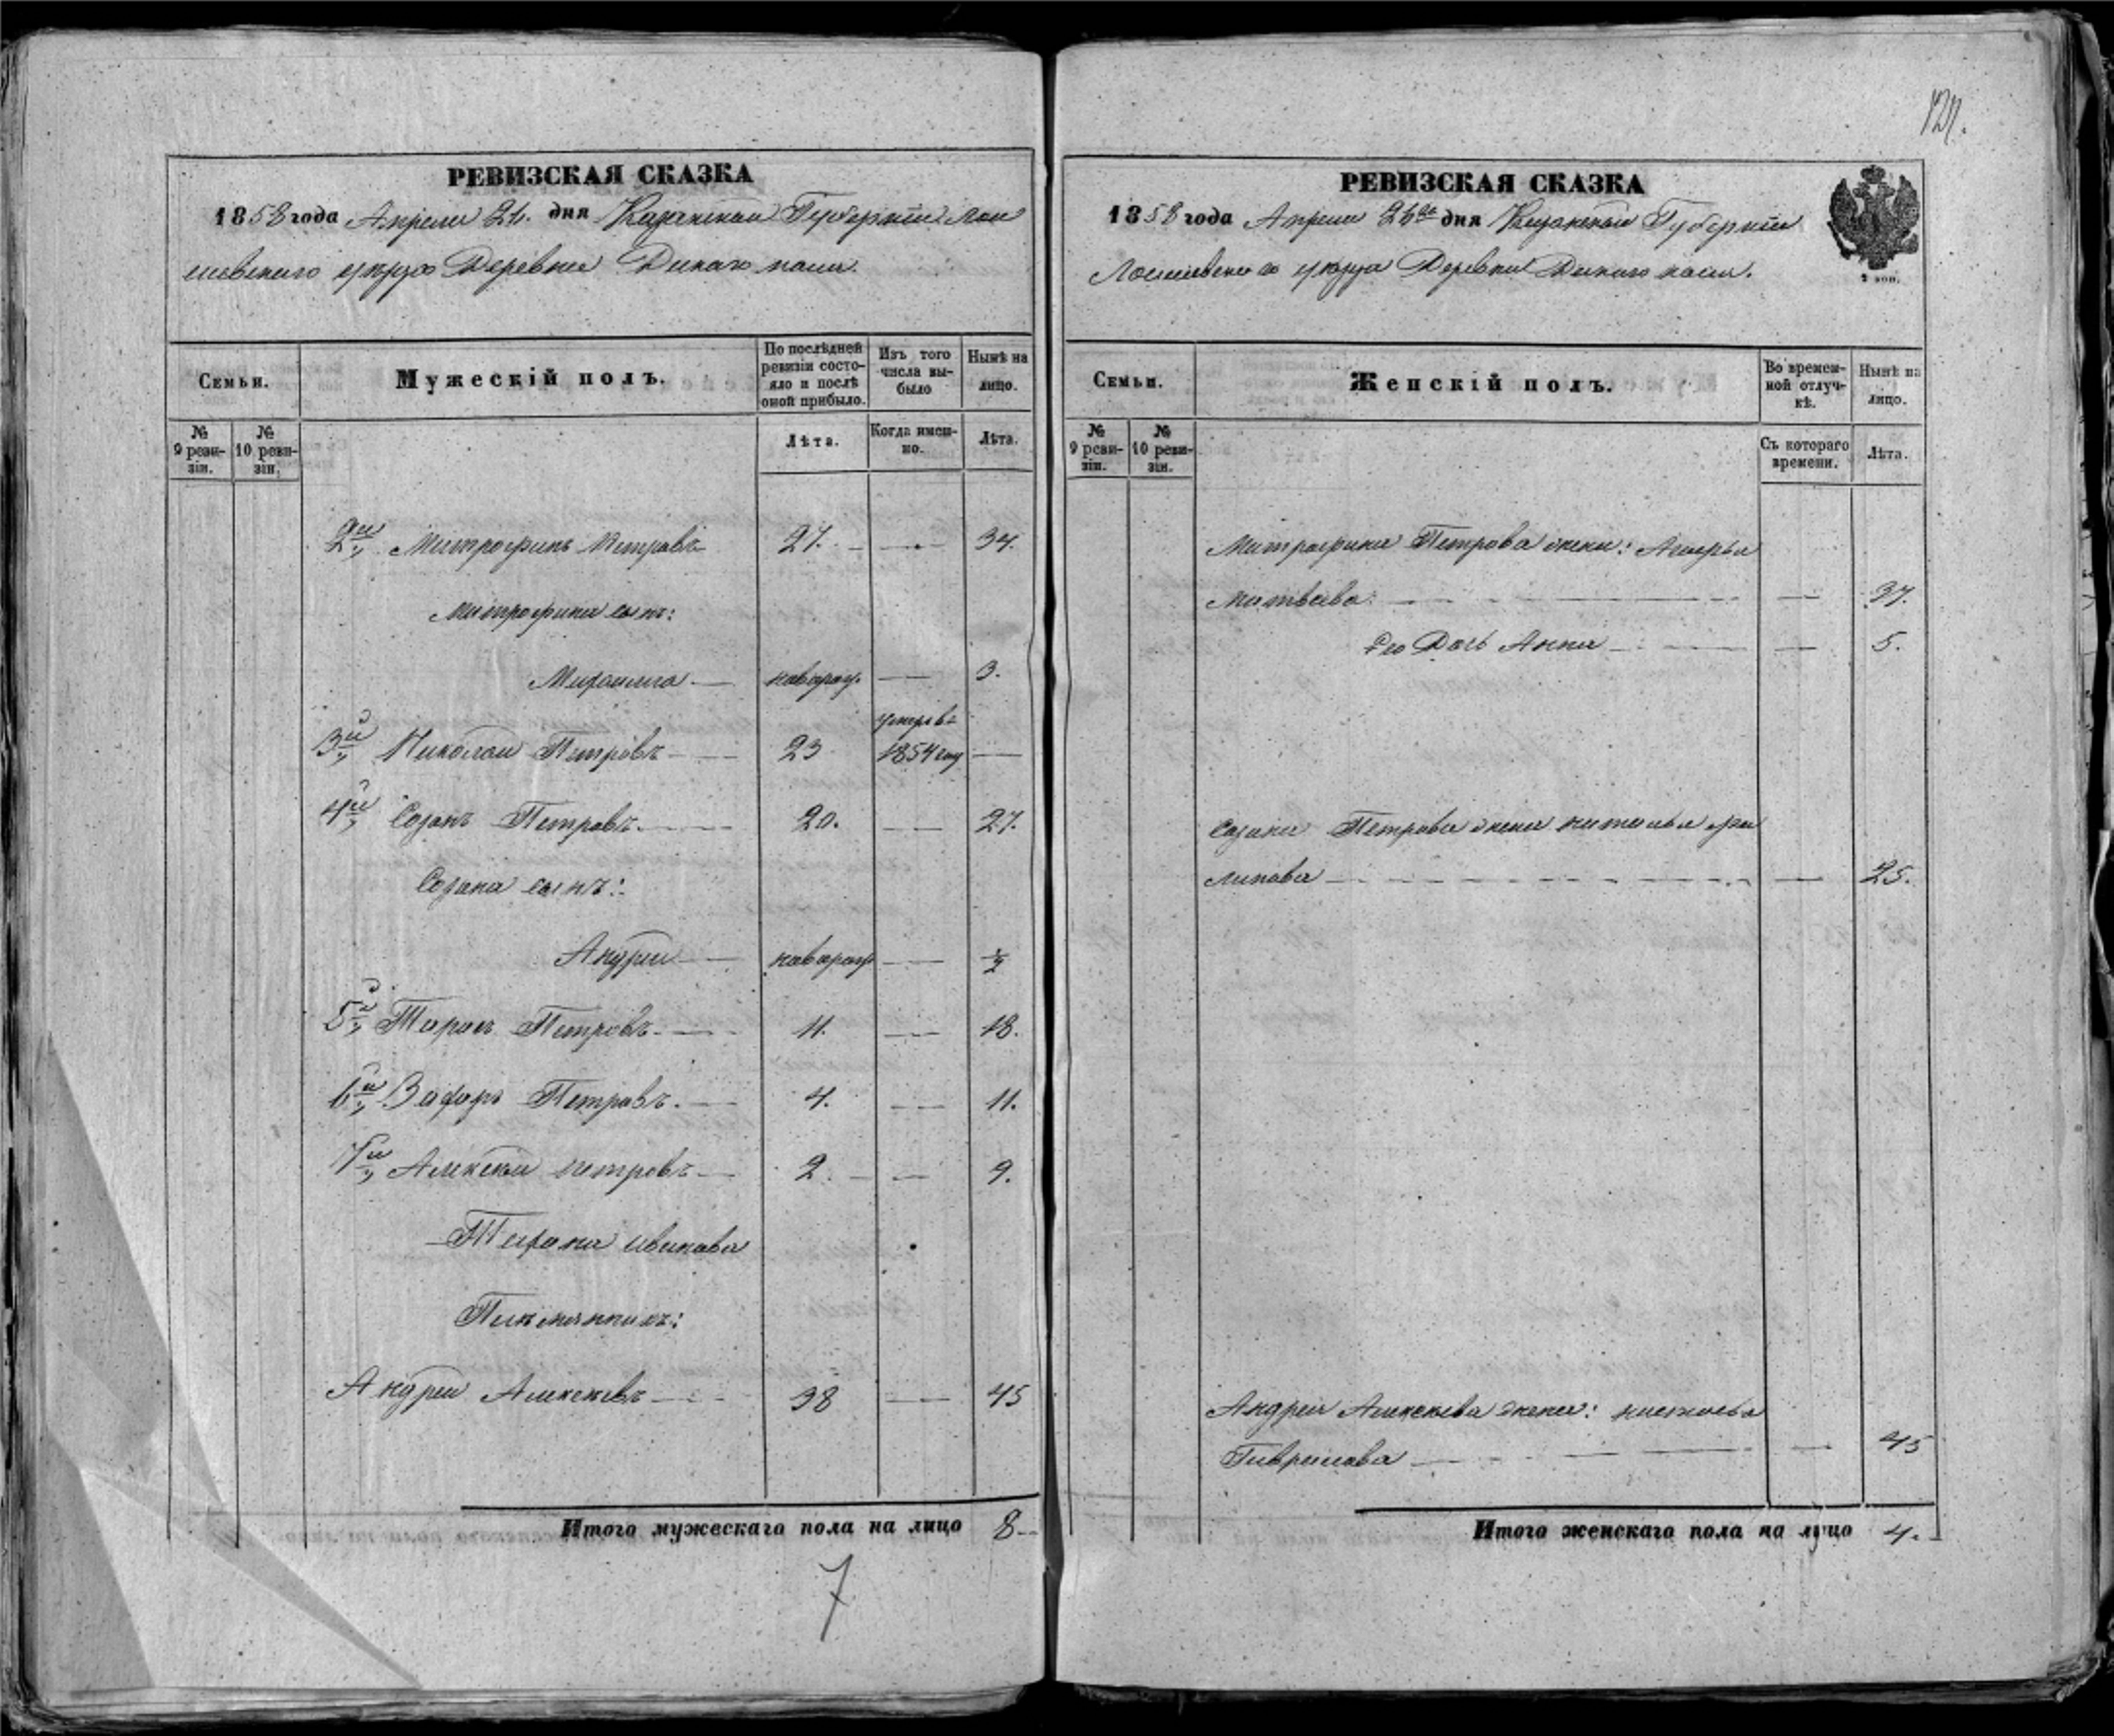 РЕВИЗСКАЯ СКАЗКА
1858 года Апреля 26. дня Казанской Губернии Лаи
шевскаго уезда Деревни Дикаго поля.
Семьи.
Мужескій полъ.
По послѣдней ревизіи состояло и послѣ оной прибыло.
Изъ того числа выбыло
Нынѣ на лицо.
№ 9 ревизіи.
№ 10 ревизіи.
Лѣта.
Когда именно.
Лѣта.
2й Митрофанъ Петровъ 27. 34.
Митрофана сынъ:
Михаила новорож. 3.
3й Николай Петровъ 23 умеръ в 1854 году
4й Созонъ Петровъ. 20. 27.
Созона сынъ:
Андрей новорож ½
5й Тарасъ Петровъ. 11. 18.
6й Захаръ Петровъ. 4. 11.
7й Алексей петровъ 2. 9.
Иванова
Племянникъ:
Андрей Алексеевъ 38 45
Итого мужескаго пола на лицо 8
7
121.
РЕВИЗСКАЯ СКАЗКА
1858 года Апреля 26го дня Казанской Губернии
Лаишевскаго уезда Деревни Дикаго поля.
2 коп.
Семьи.
Женскій полъ.
Во временной отлучкѣ.
Нынѣ на лицо.
№ 9 ревизіи.
№ 10 ревизіи.
Съ котораго времени.
Лѣта.
Митрофана Петрова жена:
Матвеева. 37.
Его Дочь Анна 5.
Созона Петрова жена наталья фи
липова 25.
Андрея Алексеева жена: настасья
Гаврилова 45
Итого женскаго пола на лицо 4.